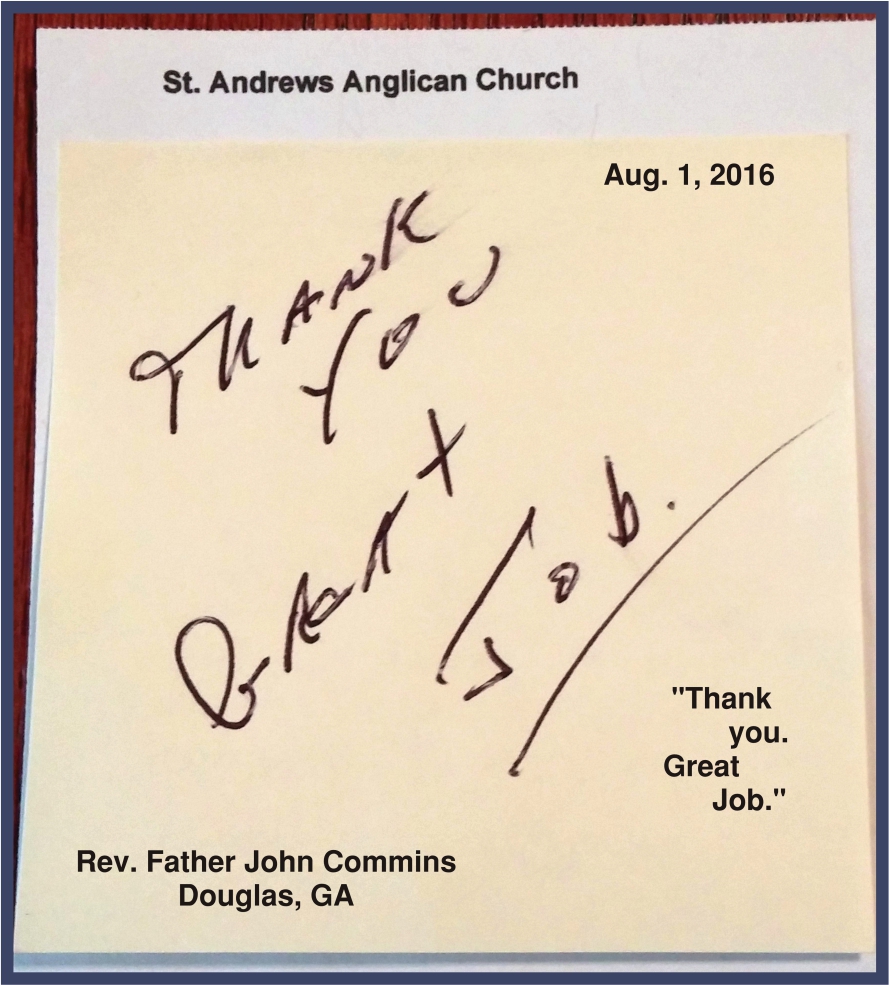 St. Andrews Anglican Church
Aug. 1, 2016
THANK
YOU
GREAT
Job.
"Thank
you.
Great
Job."
Rev. Father John Commins
Douglas, GA